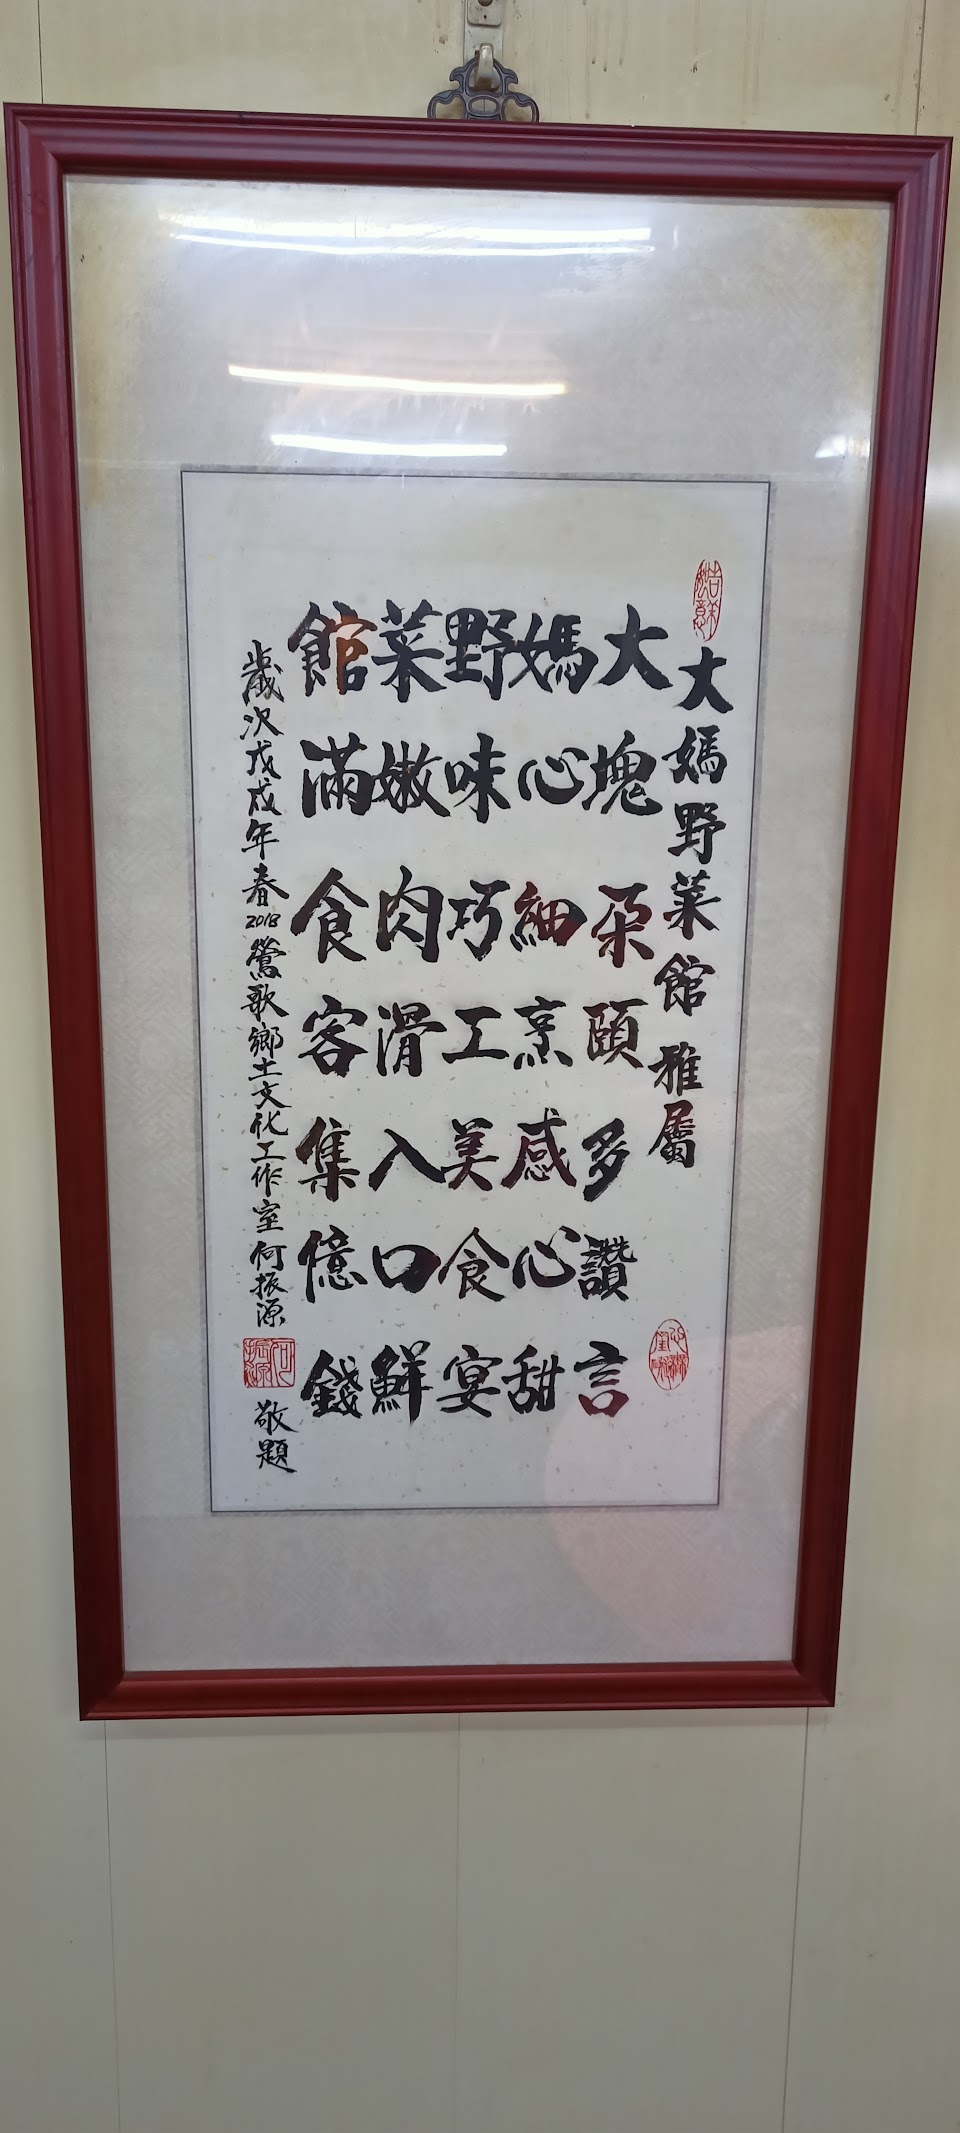 大媽野菜館 雅屬
大塊朵頤多讚言
媽心細烹感心甜
野味巧工美食宴
菜嫩肉滑入口鮮
館滿食客集億錢
歲次戊戌年春2018鶯歌鄉土文化工作室何振源 敬題
何振源